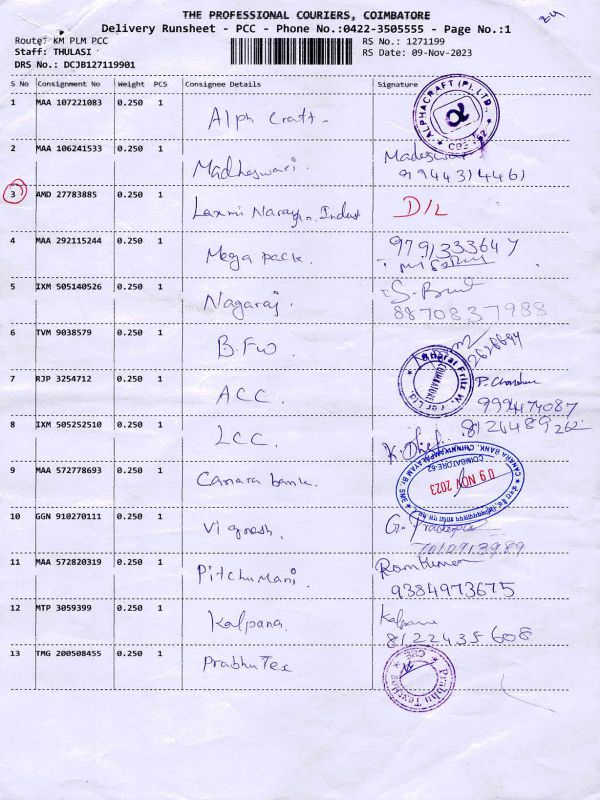 THE PROFESSIONAL COURIERS, COIMBATORE
Delivery Runsheet - PCC - Phone No.:0422-3505555 - Page No.:1
Route: KM PLM PCC
RS No.: 1271199
Staff: THULASI
RS Date: 09-Nov-2023
DRS No.: DCJB127119901
S No Consignment No Weight PCS Consignee Details Signature
1 MAA 107221083 0.250 1 Alph Craft -
ALPHACRAFT (P) LTD., CBE
2 MAA 106241533 0.250 1 Madheswari.
9944314461
3 AMD 27783885 0.250 1 Laxmi Narayan. Indust D/L
4 MAA 292115244 0.250 1 Mega pack. 9791333647
5 IXM 505140526 0.250 1 Nagaraj. S.
8870837988
6 TVM 9038579 0.250 1 B.FW.
Bharat Fritz W
COIMBATORE
7 RJP 3254712 0.250 1 ACC.
9994474087
8 IXM 505252510 0.250 1 LCC.
8124489262
9 MAA 572778693 0.250 1 Canara bank.
CANARA BANK,
COIMBATORE-62
09 NOV 2023
10 GGN 910270111 0.250 1 Vignesh. G.
7010913989
11 MAA 572820319 0.250 1 Pitchumani. Ramkumar
9384973675
12 MTP 3059399 0.250 1 Kalpana. Kalpana
8122435608
13 TMG 200508455 0.250 1 Prabhu Tex